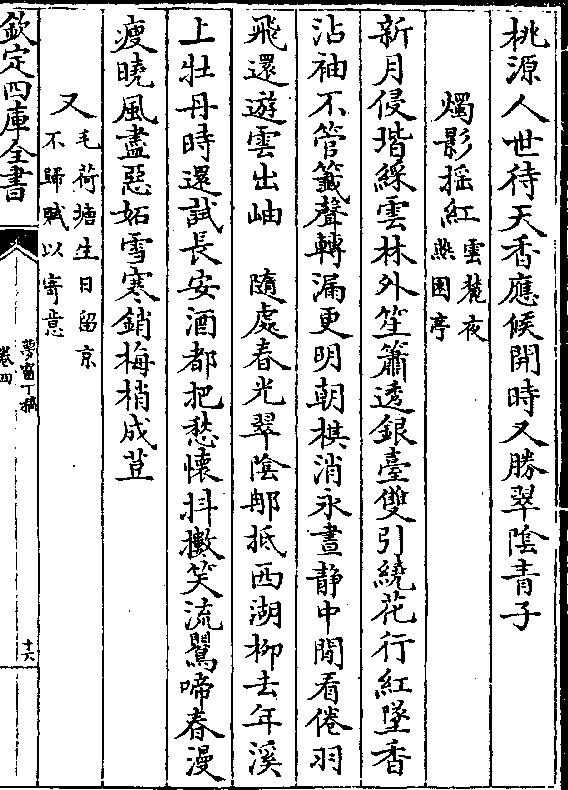 桃源人世待天香應候開時又勝翠陰青子
燭影搖紅雲麓夜
燕園亭
新月侵堦綵雲林外笙簫透銀臺雙引繞花行紅墜香
沾袖不管籤聲轉漏更明朝棋消永晝静中閒看倦羽
飛還遊雲出岫　隨處春光翠陰那抵西湖柳去年溪
上牡丹時還試長安酒都把愁懷抖擻笑流鶯啼春漫
瘦曉風盡惡妬雪寒銷梅梢成荳
又毛荷塘生日留京
不歸賦以寄意
欽定四庫全書
夢窗丁稿
卷四
十六